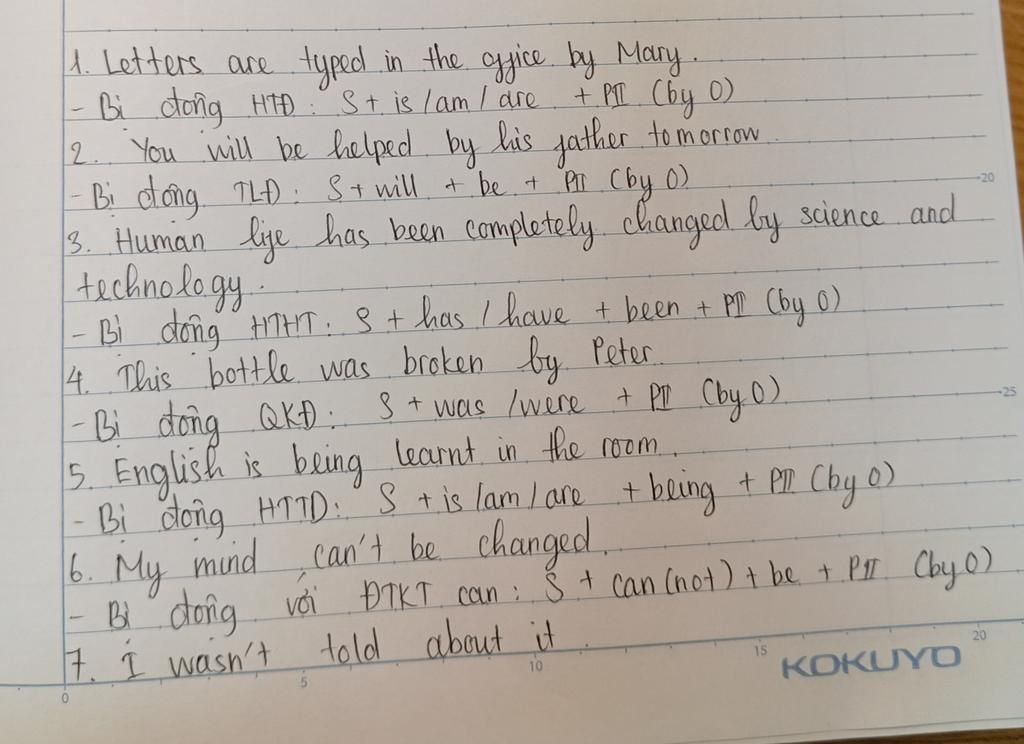 1. Letters are typed in the office by Mary.
- Bị động HTĐ: S + is / am / are + PII (by O)
2. You will be helped by his father tomorrow
- Bị động TLĐ: S + will + be + PII (by O)
20
3. Human life has been completely changed by science and
technology.
- Bị động HTHT: S + has / have + been + PII (by O)
4. This bottle was broken by Peter.
- Bị động QKĐ: S + was / were + PII (by O)
25
5. English is being learnt in the room.
- Bị động HTTD: S + is / am / are + being + PII (by O)
6. My mind can't be changed.
- Bị động với ĐTKT can: S + can (not) + be + PII (by O)
7. I wasn't told about it.
0 5 10 15 20
KOKUYO